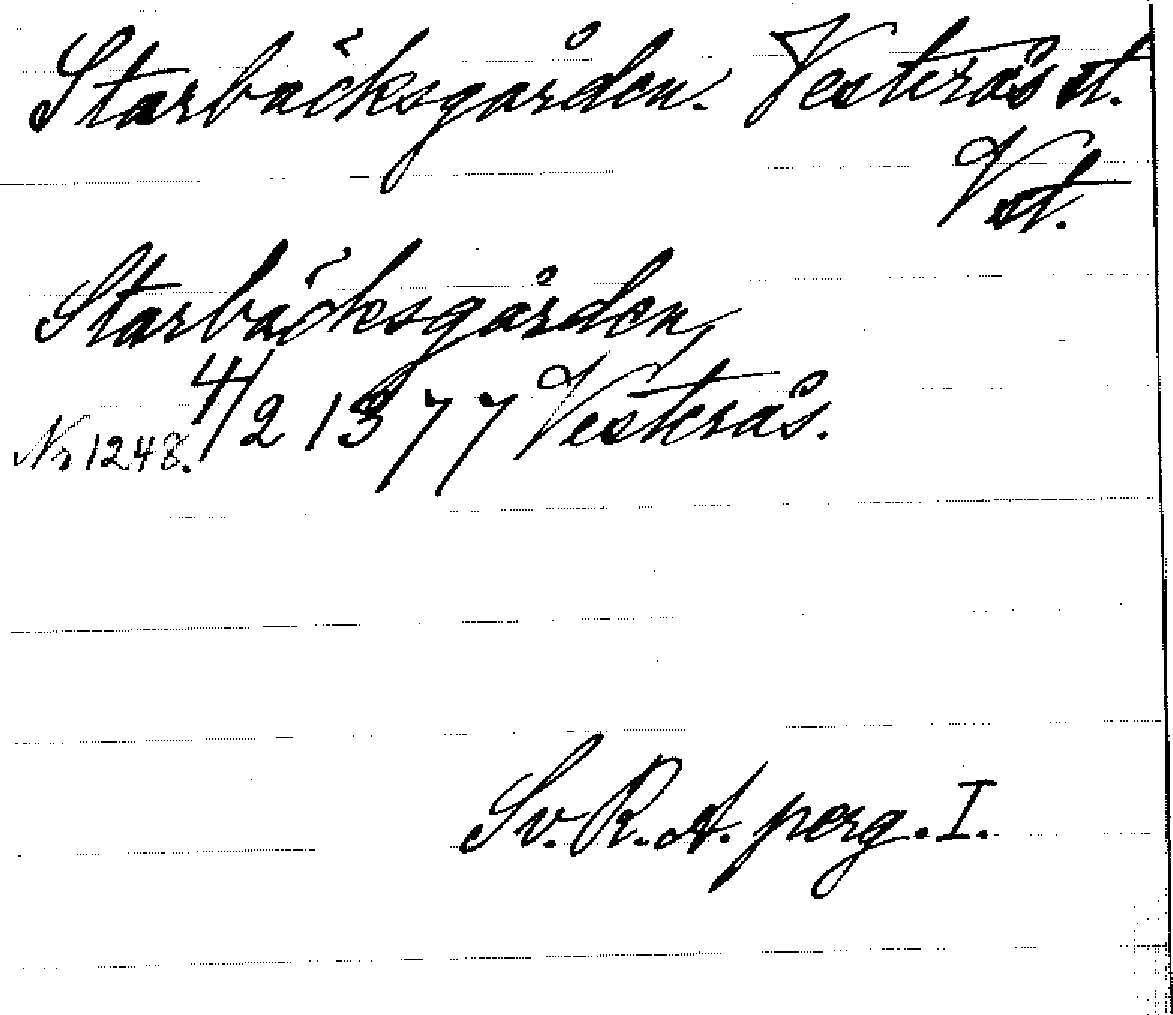 Starbäcksgården. Vesterås st.
Vst.
Starbäcksgården,
4/2 1377 Vesterås.
Nr 1248.
Sv. R. A. perg. I.